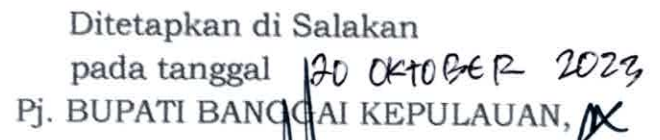 Ditetapkan di Salakan
pada tanggal 20 OKTOBER 2023
Pj. BUPATI BANGGAI KEPULAUAN,